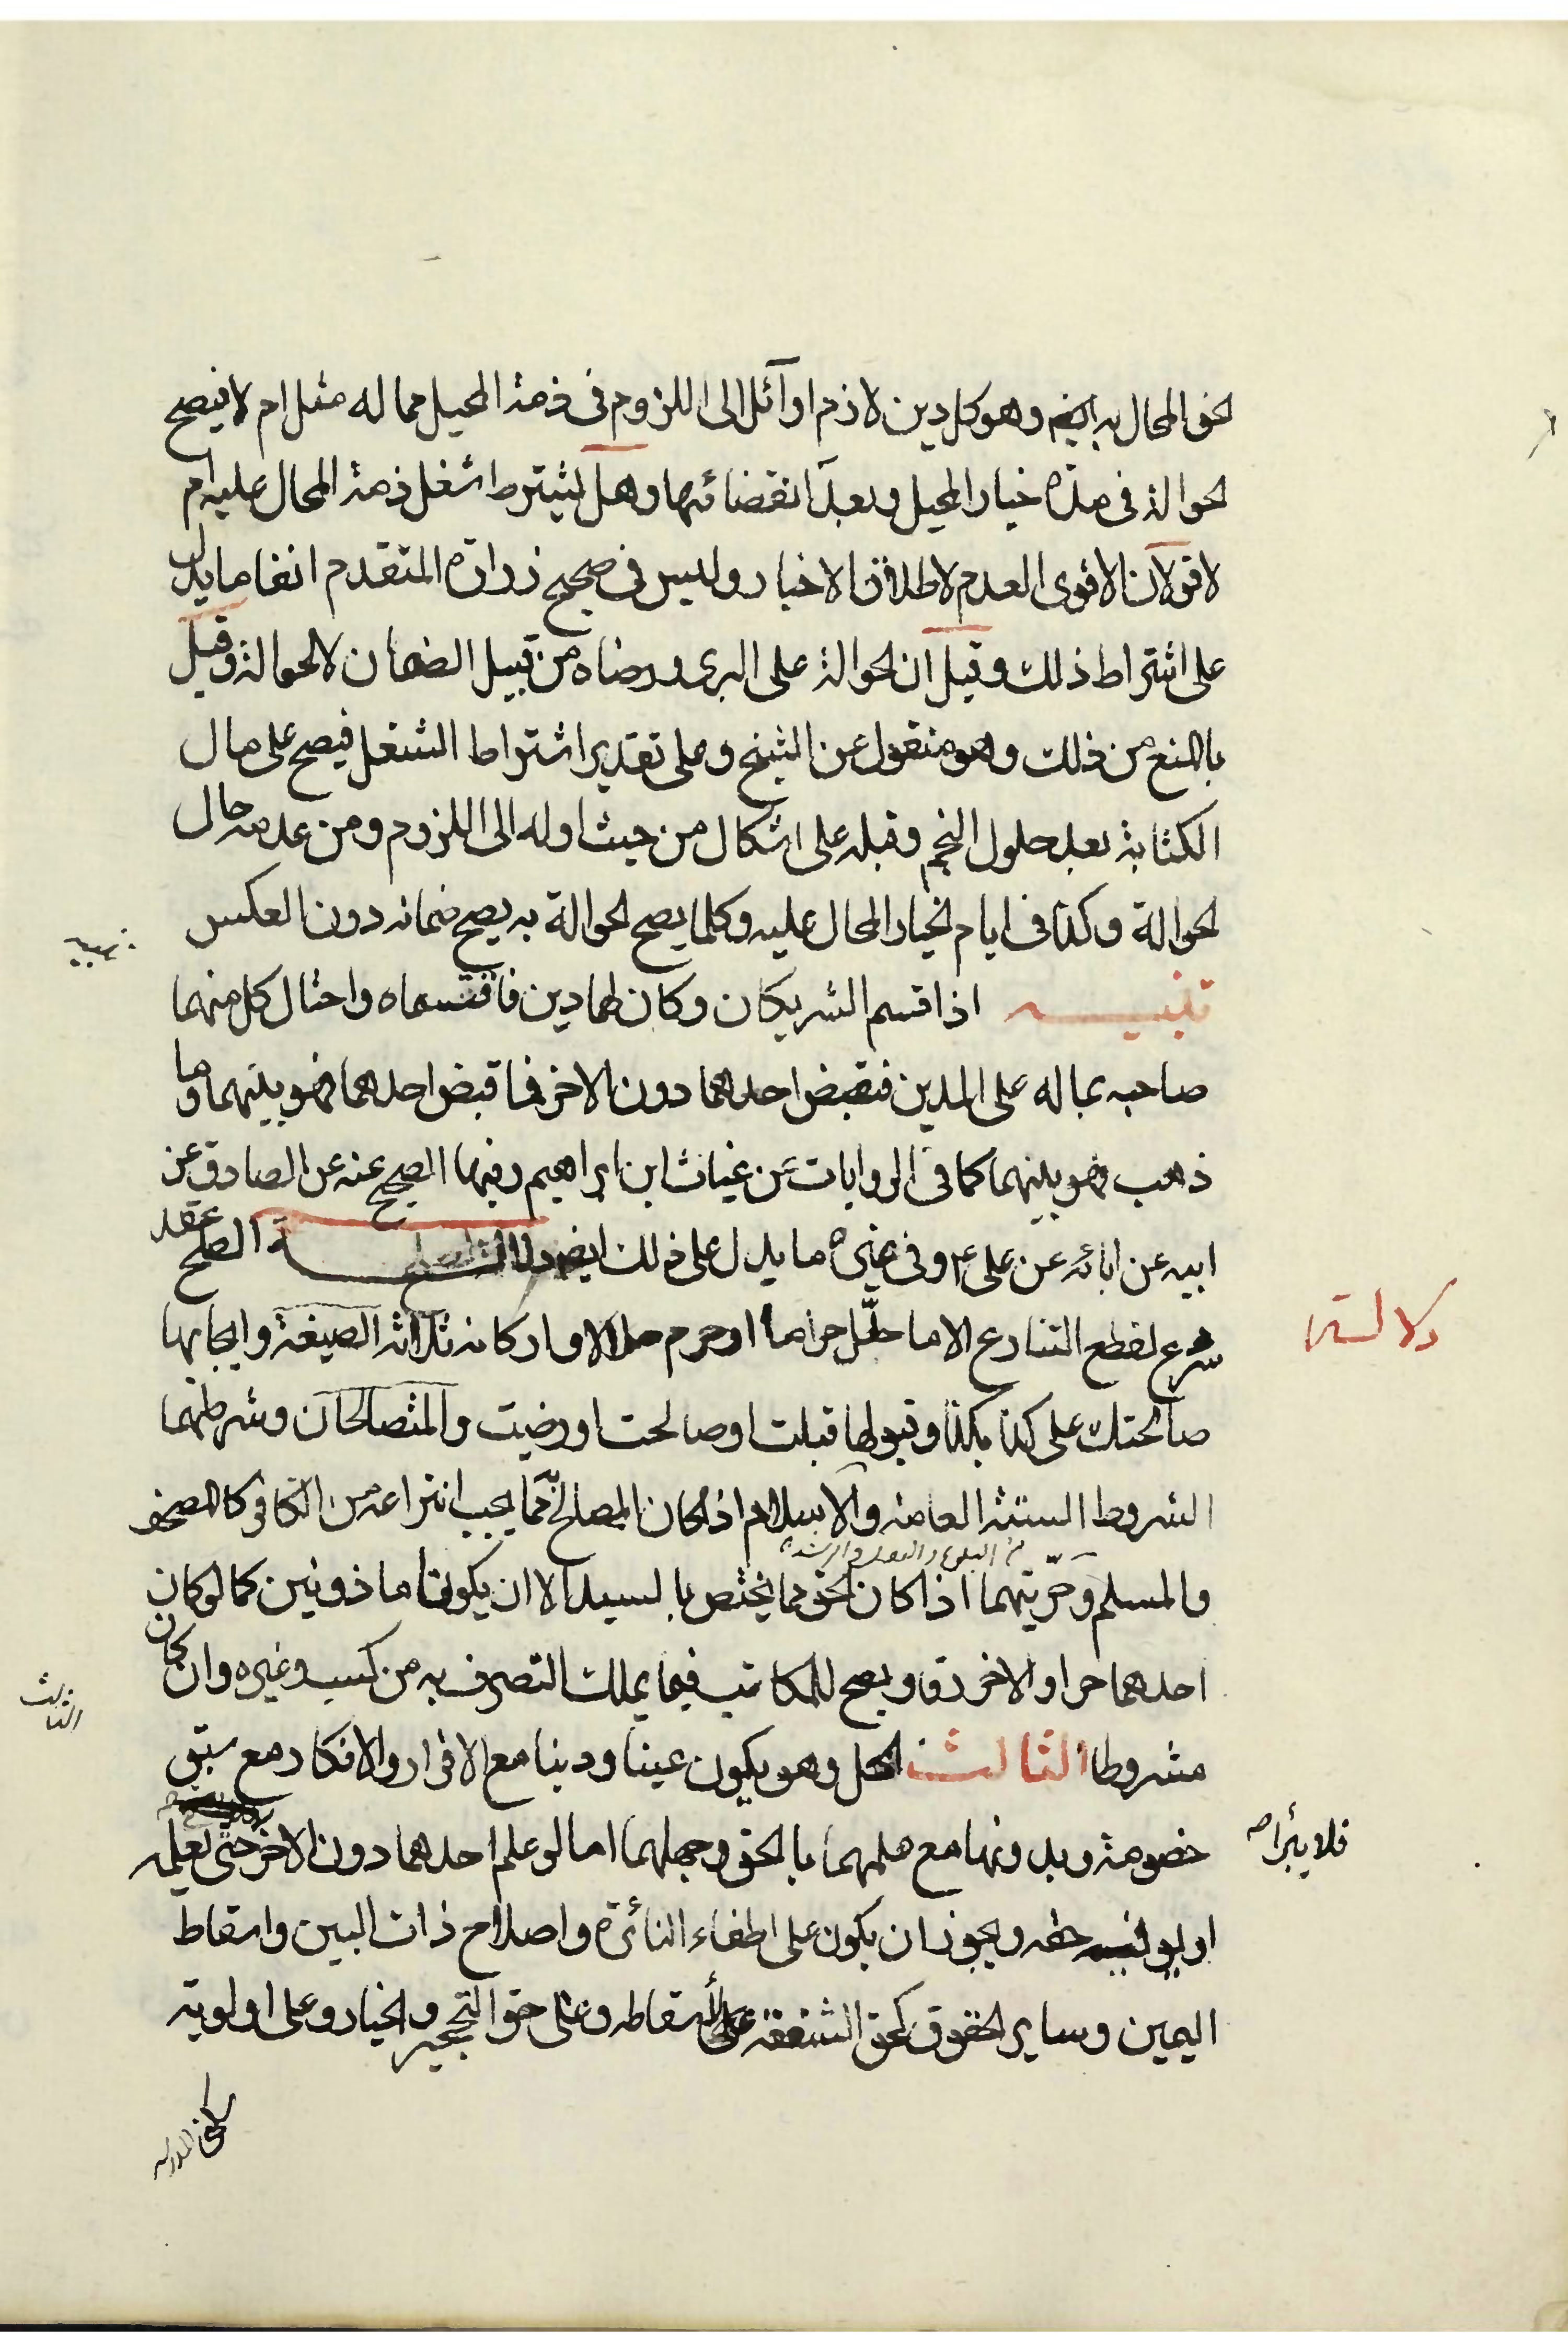 الحق المحال به ايضا وهو كل دين لازم او آئل الى اللزوم فى ذمة المحيل مما له مثل ام لا فيصح
الحوالة فى مدة خيار المحيل وبعد انقضائها وهل يشترط اشغل ذمة المحال عليه ام
لا قولان الاقوى العدم لاطلاق الاخبار وليس فى صحيح زرارة المتقدم انفا ما يدل
على اشتراط ذلك وقيل ان الحوالة على البرى ورضاه من قبيل الضمان لا الحوالة وقيل
بالمنع من ذلك وهو منقول عن الشيخ وعلى تقدير اشتراط الشغل فيصح على مال
الكتابة بعد حلول النجم وقبله على اشكال من حيث اوله الى اللزوم ومن عدمه حال
الحوالة وكذا فى ايام الخيار المحال عليه وكلما يصح الحوالة به يصح ضمانه دون العكس
تنبيه
تنبيه اذا قسم الشريكان وكان لهما دين فاقتسماه واحتال كل منهما
صاحبه بماله على المدين فقبض احدهما دون الاخر فما قبض احدهما فهو بينهما وما
ذهب فهو بينهما كما فى الروايات عن غياث ابن ابراهيم وفيها الصحيح عنه عن الصادق عن
ابيه عن ابائه عن على ع وفى غيره ما يدل على ذلك ايضا الصلح عقد
شرع لقطع التنازع الا ما حلّل حراما او حرم حلالا واركانه ثلاثة الصيغة وايجابها
صالحتك على كذا بكذا وقبولها قبلت او صالحت او رضيت والمتصالحان وشرطهما
الشروط الستة العامة والاسلام اذا كان المصالح به مما يجب انتزاعه من الكافر كالمصحف
من البلوغ والعقل والرشد
والمسلم وحرّيتهما اذا كان الحق مما يختص بالسيد الا ان يكونا ماذونين كما لو كان
احدهما حرا والاخر رقا ويصح للمكاتب فيما يملك التصرف به من كسب وغيره وان كان
الثالث
مشروطا الثالث المحل وهو يكون عينا ودينا مع الاقرار والانكار مع سبق
خصومة وبدونها مع علمهما بالحق وجهلهما اما لو علم احدهما دون الاخر حتى يعلمه
فلا يبرأ
او يوفيه حقه ويجوز ان يكون على اطفاء النائرة واصلاح ذات البين واسقاط
اليمين وساير الحقوق كحق الشفعة على اسقاطه وعلى حق التحجير والخيار وعلى اولوية